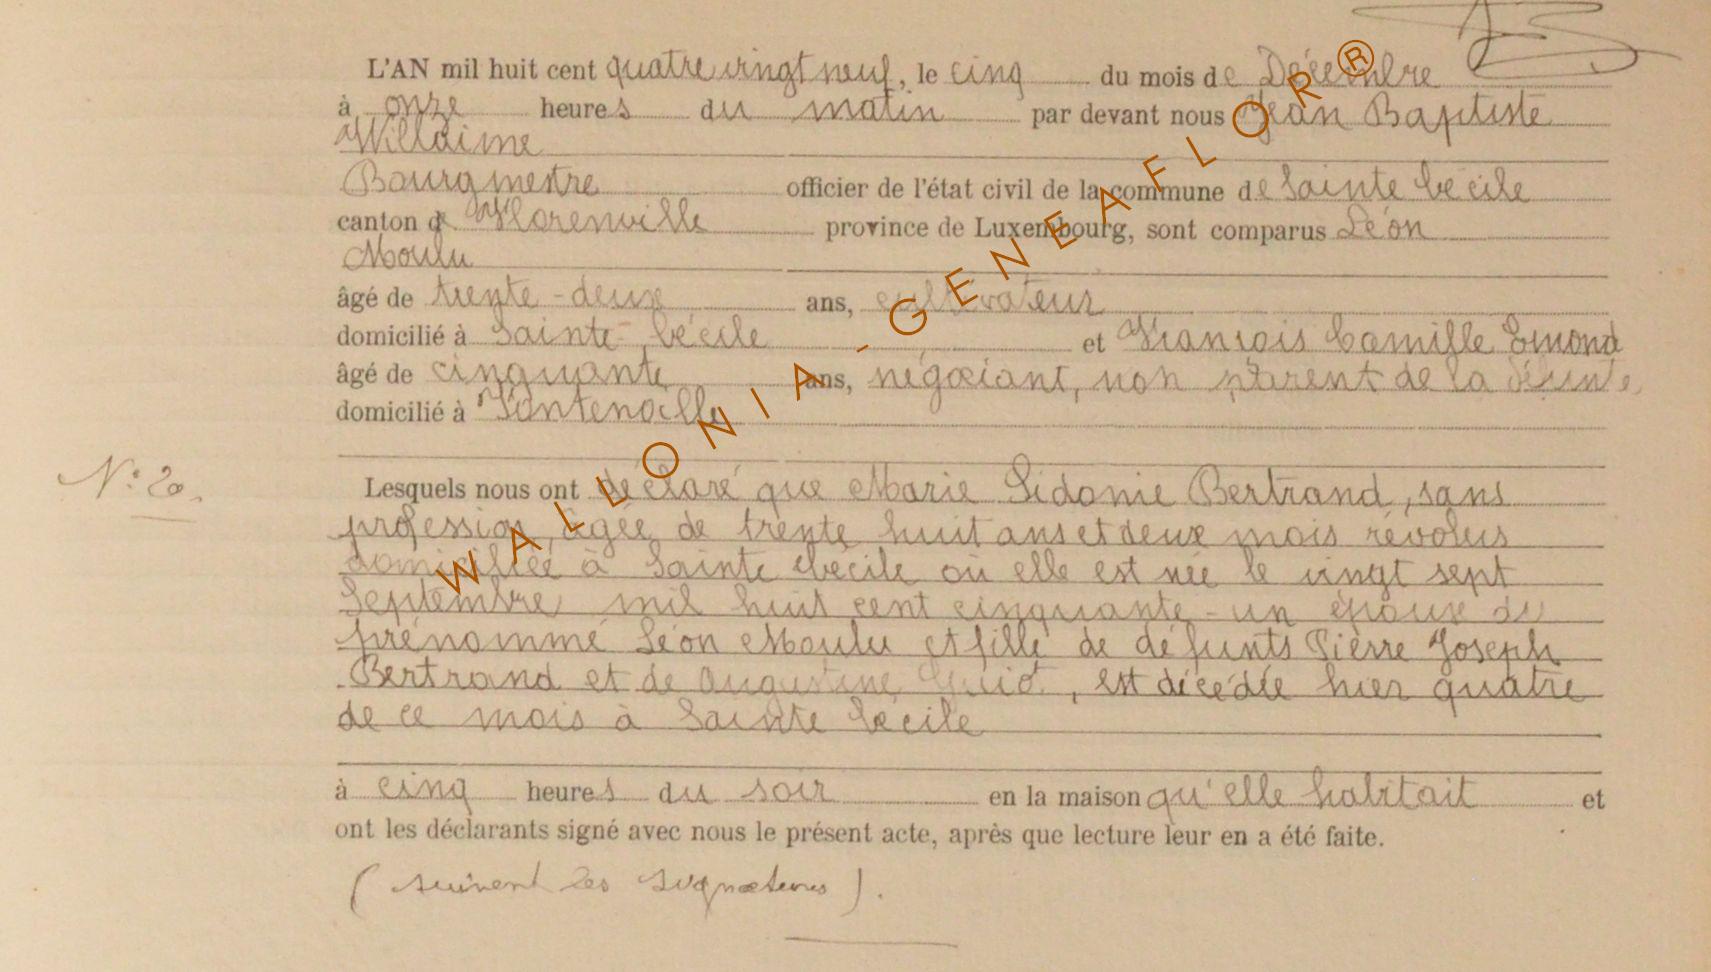 L'AN mil huit cent quatre vingt neuf, le cinq du mois de Décembre
à onze heures du matin par devant nous Jean Baptiste
Willaime
Bourgmestre officier de l'état civil de la commune de Sainte Cécile
canton de Florenville province de Luxembourg, sont comparus Léon
Moulu
âgé de trente-deux ans, cultivateur
domicilié à Sainte-Cécile et François Camille Emond
âgé de cinquante ans, négociant, non parent de la défunte,
domicilié à Fontenoille
N° 20.
Lesquels nous ont déclaré que Marie Sidonie Bertrand, sans
profession, âgée de trente huit ans et deux mois révolus
domiciliée à Sainte Cécile où elle est née le vingt sept
Septembre mil huit cent cinquante-un épouse du
prénommé Léon Moulu et fille de défunts Pièrre Joseph
Bertrand et de Augustine Guiot, est décédée hier quatre
de ce mois à Sainte Cécile
à cinq heures du soir en la maison qu'elle habitait et
ont les déclarants signé avec nous le présent acte, après que lecture leur en a été faite.
(suivent les signatures).
WALLONIA-GENEAFLOR®